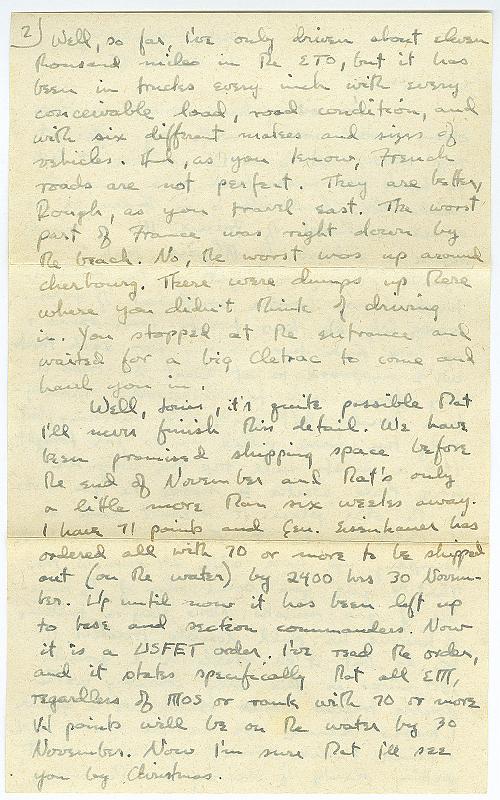 2) Well, so far, I've only driven about eleven
thousand miles in the ETO, but it has
been in trucks every inch with every
conceivable load, road condition, and
with six different makes and sizes of
vehicles. And, as you know, French
roads are not perfect. They are better,
though, as you travel east. The worst
part of France was right down by
the beach. No, the worst was up around
Cherbourg. There were dumps up there
where you didn't think of driving
in. You stopped at the entrance and
waited for a big Cletrac to come and
haul you in.
Well, , it's quite possible that
I'll never finish this detail. We have
been promised shipping space before
the end of November and that's only
a little more than six weeks away.
I have 71 points and Gen. Eisenhauer has
ordered all with 70 or more to be shipped
out (on the water) by 2400 hrs 30 Novem-
ber. Up until now it has been left up
to base and section commanders. Now
it is a USFET order. I've read the order,
and it states specifically that all EM,
regardless of MOS or rank with 70 or more
VJ points will be on the water by 30
November. Now I'm sure that I'll see
you by Christmas.